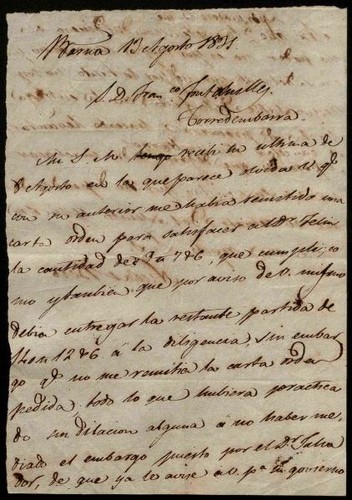 Barna 13 Agosto 1831
S. D. Franco. Fontanilles
Torredembarra.
Mi S. M. recibi su ultima de
8 Agosto en la que parece olvida el qe
con su anterior me habia remitido una
carta orden para satisfacer al Dr.
la cantidad de 7 6, que cumpli; co
mo tambien que por aviso de V. mismo
debia entregar la restante partida de
12 6 á la diligencia, sin embar
go qe no me remitia la carta orden
pedida, todo lo que hubiera practica
do sin dilacion alguna á no haber me
diado el embargo puesto por el Dr.
dor, de que ya le avise á V. pa su govierno